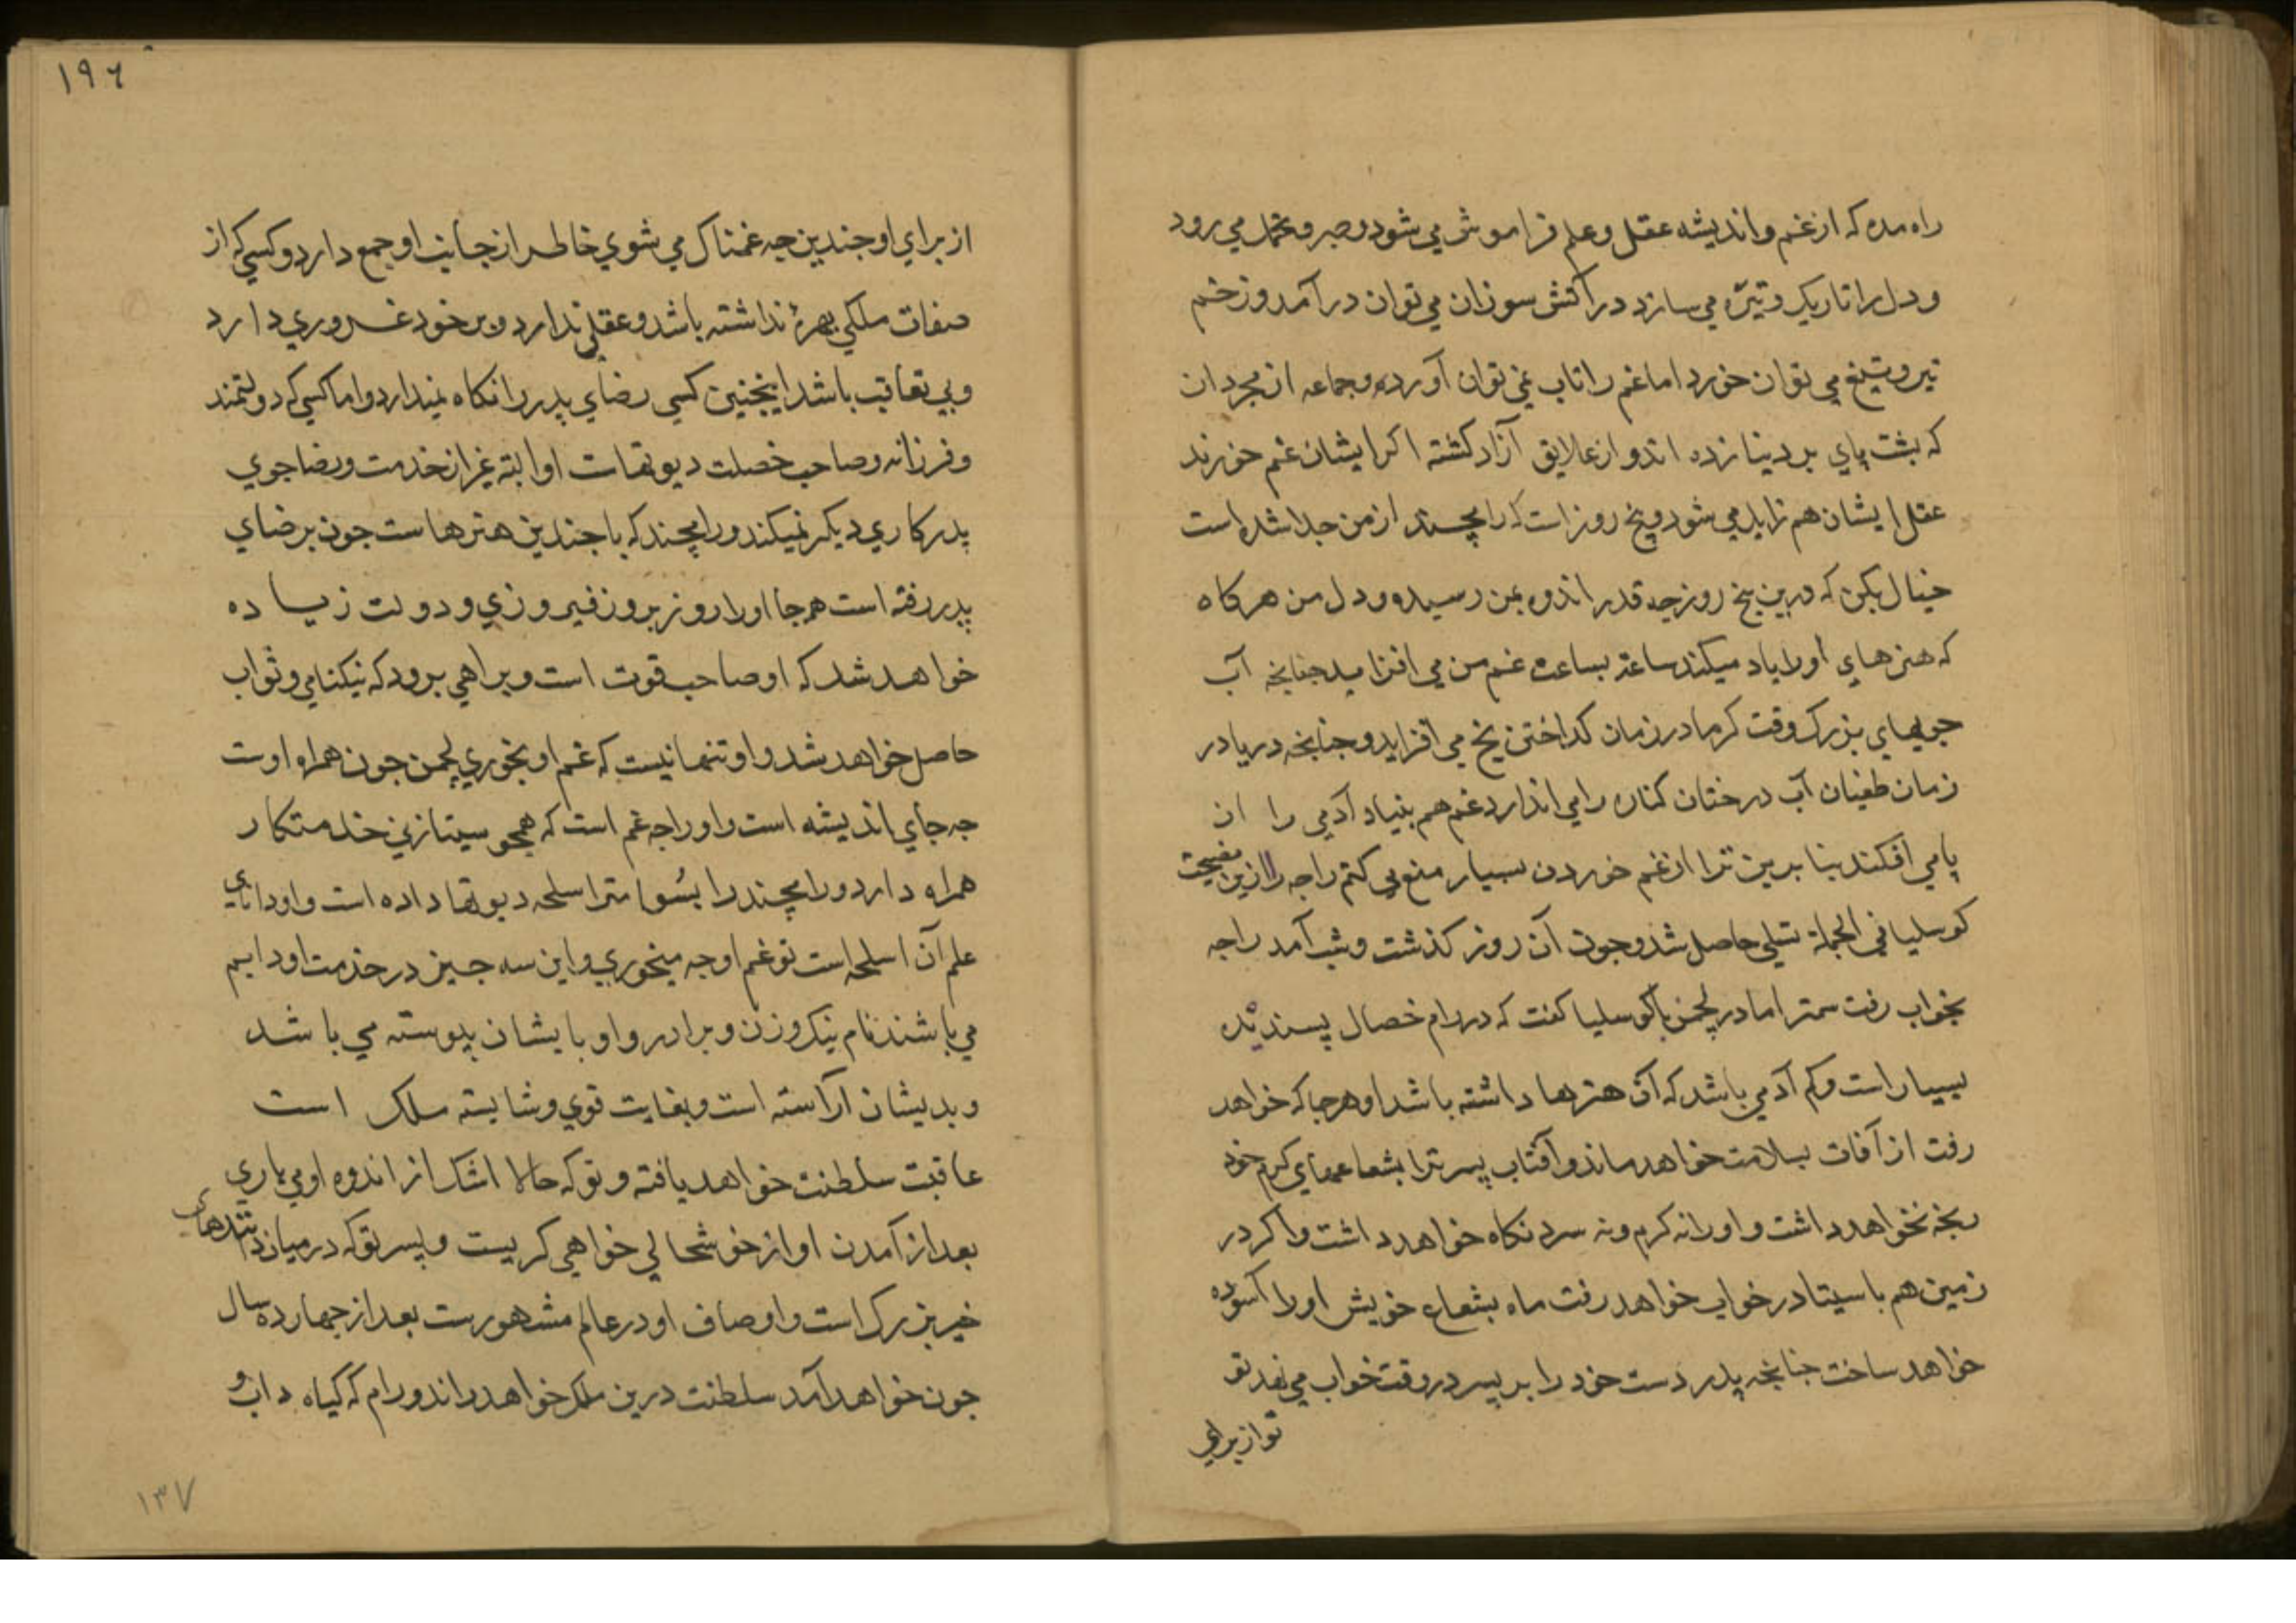 راه مده که از غم و اندیشه عقل و علم فراموش می شود و صبر و تحمل می رود
و دل را تاریک و تیره می سازد در آتش سوزان می توان در آمد و زخم
تیر و تیغ می توان خورد اما غم را تاب نمی توان آورده و جماعه از مجردان
که پشت پای بر دینا زده اند و از علایق آزاد کشته اکر ایشان غم خورند
عقل ایشان هم زایل می شود و پنج روز است که رامچند از من جدا شده است
خیال بکن که درین پنج روز چه قدر اندوه بمن رسیده و دل من هرکاه
که هنرهای او را یاد میکند ساعة بساعت غم من می افزاید جنانچه آب
جویهای بزرک وقت کرما در زمان کداختن یخ می افزاید و جنانچه دریا در
زمان طغیان آب درختان کناره را می اندازد غم هم بنیاد آدمی را از
پا می افکند بنا برین ترا از غم خوردن بسیار منع می کنم راجه را ازین نصیحت
کوسلیا فی الجملة تسلی حاصل شد و جون آن روز کذشت و شب آمد راجه
بخواب رفت سمترا مادر لچمن با کوسلیا کفت که در رام خصال پسندیده
بسیار است و کم آدمی باشد که آن هنرها داشته باشد او هرجا که خواهد
رفت از آفات بسلامت خواهد ماند و آفتاب پسر ترا بشعاعهای کرم خود
رنجه نخواهد داشت و او را نه کرم و نه سرد نکاه خواهد داشت و اکر در
زمین هم با سیتا در خواب خواهد رفت ماه بشعاع خویش او را آسوده
خواهد ساخت جنانچه پدر دست خود را بر پسر در وقت خواب می نهد تو
تو از برای
۱۹۶
از برای او جندین چه غمناک می شوی خاطر از جانب او جمع دار و کسی که از
صفات ملکی بهرۀ نداشته باشد و عقلی ندارد و بر خود غروری دارد
و بی تعاقب باشد اینجنین کسی رضای پدر را نکاه نمیدارد و اما کسی که دولتمند
و فرزانه و صاحب خصلت دیوتهاست او البته غیر از خدمت و رضا جوی
پدر کاری دیکر نمیکند و رامچند که با جندین هنرهاست جون بر رضای
پدر رفته است هرجا او را روز بروز فیروزی و دولت زیاده
خواهد شد که او صاحب قوت است و براهی برود که نیکنامی و ثواب
حاصل خواهد شد و او تنها نیست که غم او بخوری لچمن جون همراه اوست
جه جای اندیشه است و او را جه غم است که همچو سیتا زنی خدمتکار
همراه دارد و رامچند را بسوامتر اسلحه دیوتها داده است و او دانای
علم آن اسلحه است تو غم او جه میخوری و این سه جیز در خدمت او دایم
می باشند نام نیک و زن و برادر و او بایشان پیوسته می باشد
و بدیشان آراسته است و بغایت قوی و شایسته ملک است
عاقبت سلطنت خواهد یافته و تو که حالا اشک از اندوه او می باری
بعد از آمدن او از خوشحالی خواهی کریست و پسر تو که در میان تندهای
خیر بزرک است و اوصاف او در عالم مشهورست بعد از جهارده سال
جون خواهد آمد سلطنت درین ملک خواهد راند و رام که کیاه داب و
۱۳۷